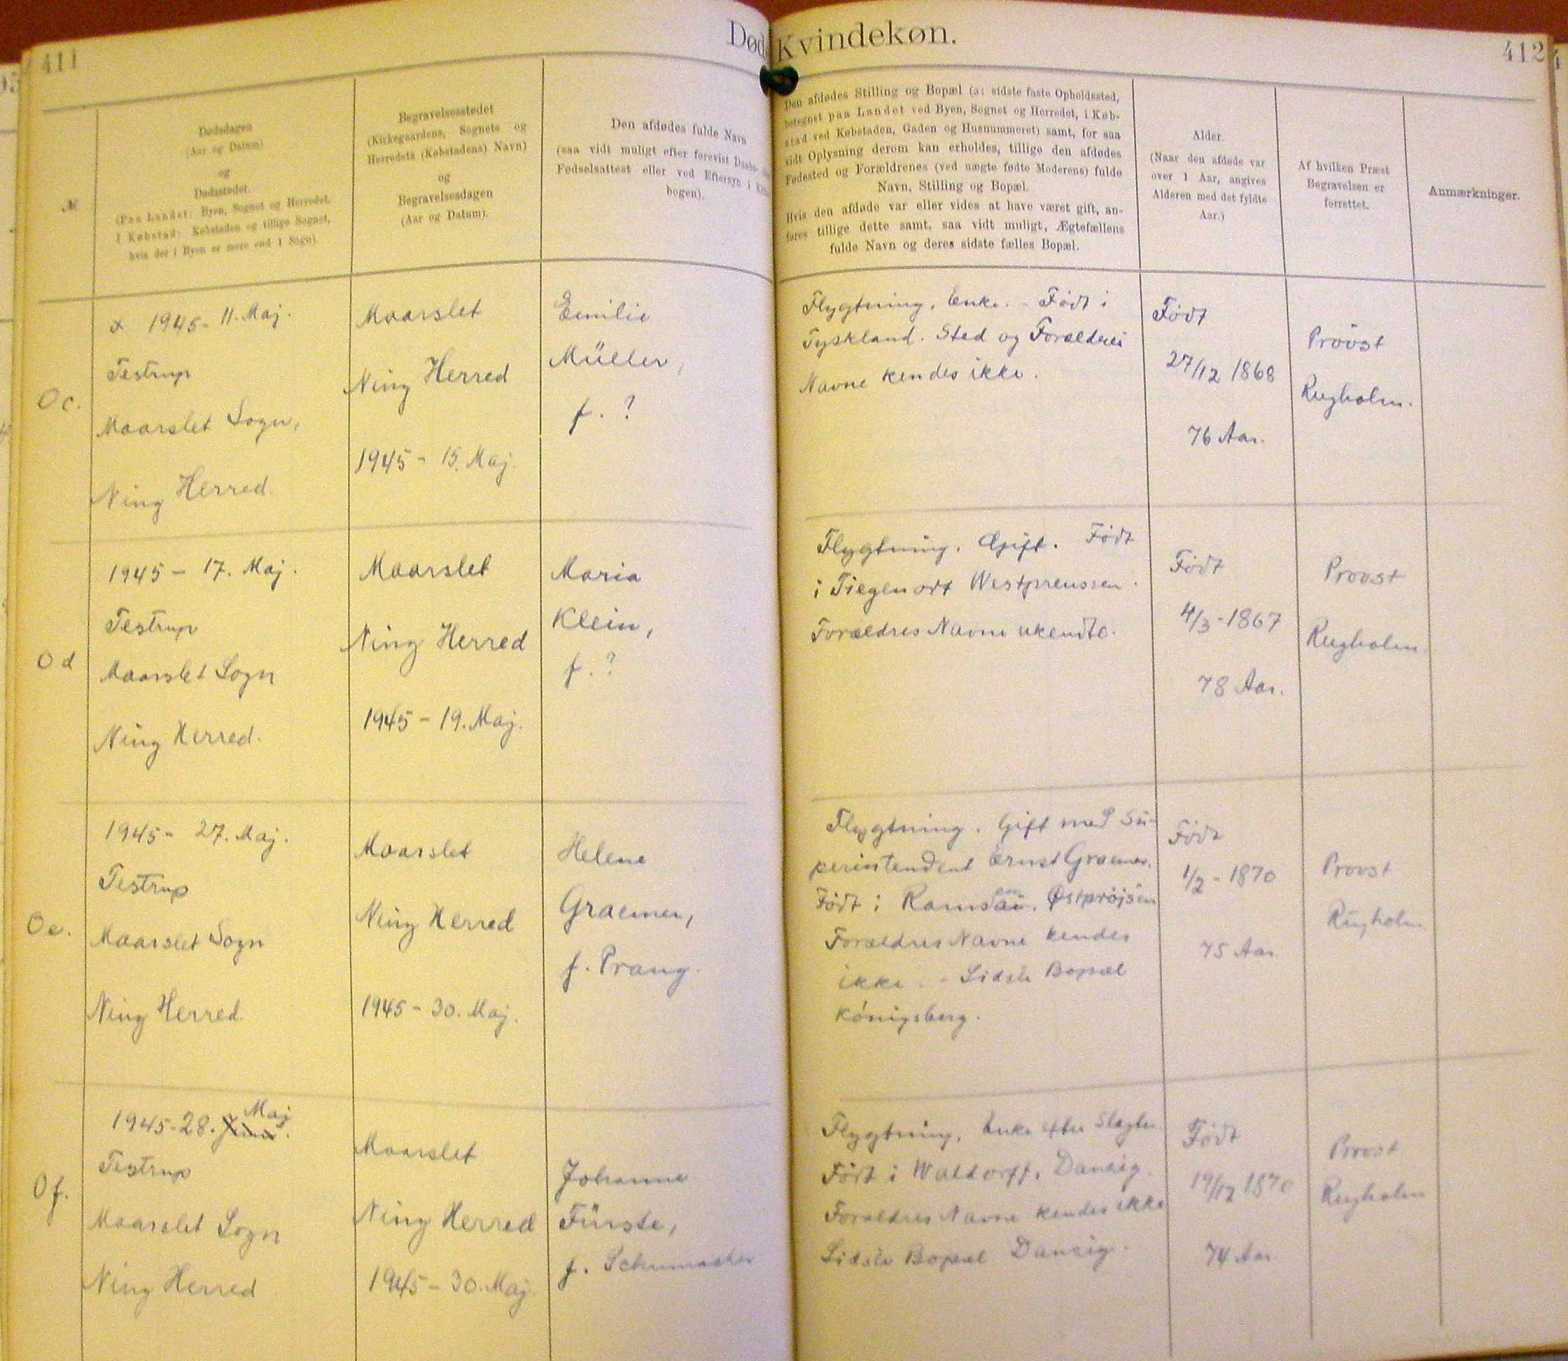 411
Død
Kvindekøn.
412
№
Dødsdagen
(Aar og Datum)
og
Dødsstedet.
(Paa Landet: Byen, Sognet og Herredet,
I Købstad: Købstaden og tillige Sognet,
hvis der i Byen er mere end 1 Sogn).
Begravelsesstedet
(Kirkegaardens, Sognets og
Herredets (Købstadens) Navn)
og
Begravelsesdagen
(Aar og Datum).
Den afdødes fulde Navn
(saa vidt muligt efter forevist Daabs-
Fødselsattest eller ved Eftersyn i
bogen).
Den afdødes Stilling og Bopæl (ɔ: sidste faste Opholdssted,
betegnet paa Landet ved Byen, Sognet og Herredet, i Køb-
stad ved Købstaden, Gaden og Husnummeret) samt, for saa
vidt Oplysning derom kan erholdes, tillige den afdødes
Fødested og Forældrenes (ved uægte fødte Moderens) fulde
Navn, Stilling og Bopæl.
Hvis den afdøde var eller vides at have været gift, an-
føres tillige dette samt, saa vidt muligt, Ægtefællens
fulde Navn og deres sidste fælles Bopæl.
Alder.
(Naar den afdøde var
over 1 Aar, angives
Alderen med det fyldte
Aar.)
Af hvilken Præst
Begravelsen er
forrettet.
Anmærkninger.
0 c.
1945 - 11. Maj.
Testrup
Maarslet Sogn,
Ning Herred
Maarslet
Ning Herred
1945 - 15. Maj.
Emilie
Müller,
f. ?
Flygtning. Enke. - Født i
Tyskland. Sted og Forældres
Navne kendes ikke.
Født
27/12 1868
76 Aar.
Provst
Rugholm.
0 d
1945 - 17. Maj.
Testrup
Maarslet Sogn
Ning Herred.
Maarslet
Ning Herred
1945 - 19. Maj.
Maria
Klein,
f. ?
Flygtning. Gift. Født
i Tiegenort Westpreussen.
Forældres Navne ukendte.
Født
4/3 - 1867
78 Aar.
Provst
Rugholm
0 e.
1945 - 27. Maj.
Testrup
Maarslet Sogn
Ning Herred
Maarslet
Ning Herred
1945 - 30. Maj.
Helene
Graemer,
f. Prang.
Flygtning. Gift med Su-
perintendent Ernst Graemer.
Født i Østprøjsen
Forældres Navne kendes
ikke. - Sidste Bopæl
Königsberg.
Født
1/2 - 1870
75 Aar
Provst
Rugholm
0 f.
1945 - 28. Maj
Testrup
Maarslet Sogn
Ning Herred
Maarslet
Ning Herred
1945 - 30. Maj.
Johanne
Fürste,
f. Schumacher
Flygtning. Enke efter Slagter
Født i Waldorff, Danzig.
Forældres Navne kendes ikke
Sidste Bopæl Danzig.
Født
19/12 1870
74 Aar
Provst
Rugholm